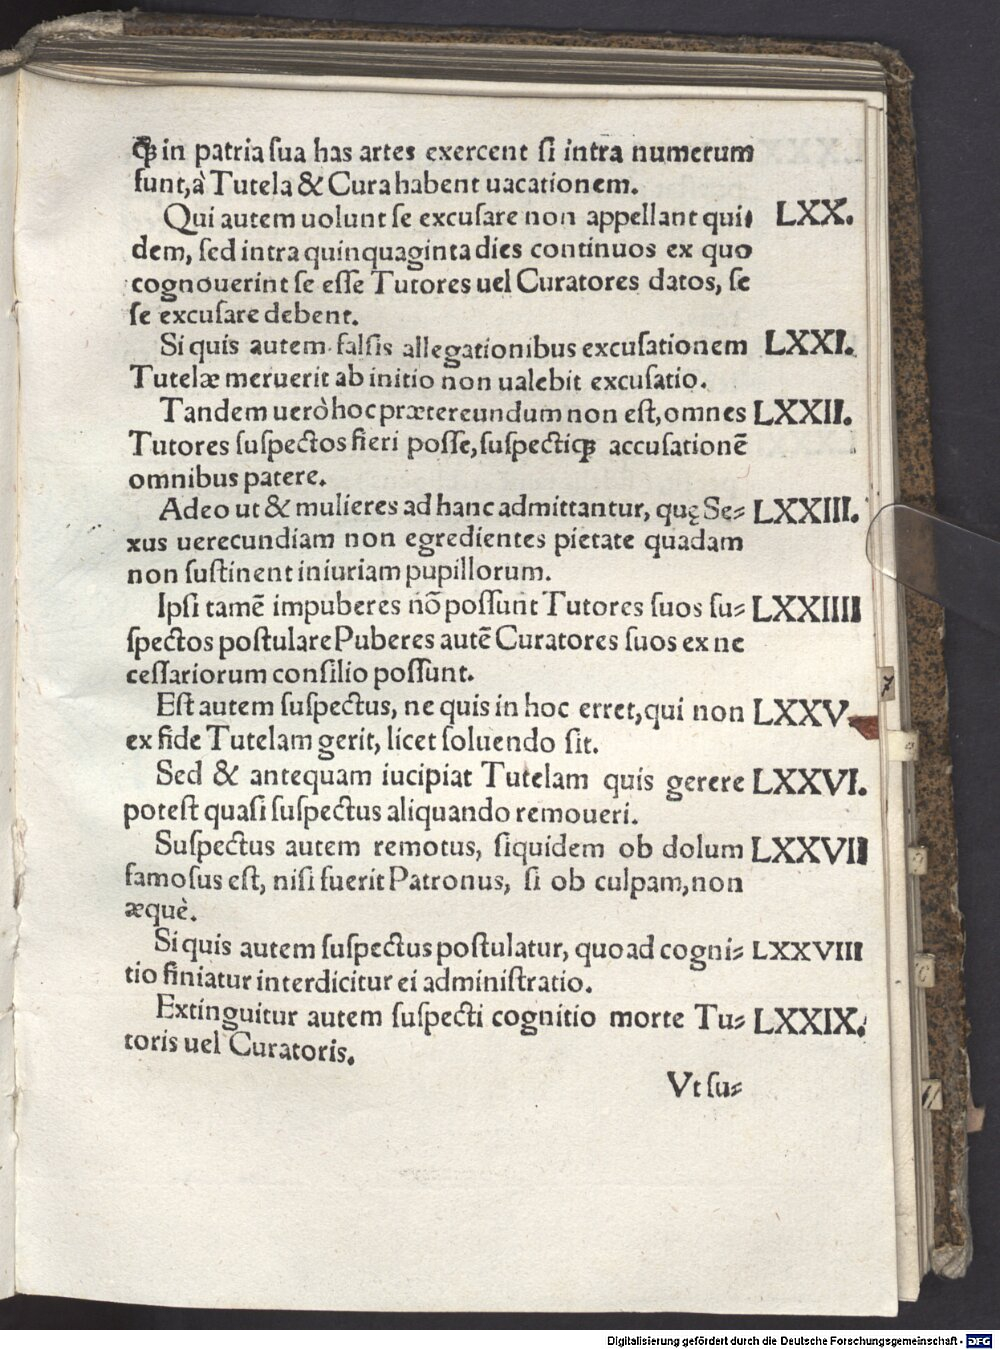 qꝫ in patria sua has artes exercent si intra numerum
sunt, à Tutela & Cura habent uacationem.
Qui autem uolunt se excusare non appellant qui⸗ LXX.
dem, sed intra quinquaginta dies continuos ex quo
cognouerint se esse Tutores uel Curatores datos, se
se excusare debent.
Si quis autem falsis allegationibus excusationem LXXI.
Tutelæ meruerit ab initio non ualebit excusatio.
Tandem uerò hoc prætereundum non est, omnes LXXII.
Tutores suspectos fieri posse, suspectiqꝫ accusationẽ
omnibus patere.
Adeo ut & mulieres ad hanc admittantur, quę Se⸗ LXXIII.
xus uerecundiam non egredientes pietate quadam
non sustinent iniuriam pupillorum.
Ipsi tamẽ impuberes nõ possunt Tutores suos su⸗ LXXIIII
spectos postulare Puberes autẽ Curatores suos ex ne
cessariorum consilio possunt.
Est autem suspectus, ne quis in hoc erret, qui non LXXV.
ex fide Tutelam gerit, licet soluendo sit.
Sed & antequam iucipiat Tutelam quis gerere LXXVI.
potest quasi suspectus aliquando remoueri.
Suspectus autem remotus, siquidem ob dolum LXXVII
famosus est, nisi fuerit Patronus, si ob culpam, non
æquè.
Si quis autem suspectus postulatur, quoad cogni⸗ LXXVIII
tio finiatur interdicitur ei administratio.
Extinguitur autem suspecti cognitio morte Tu⸗ LXXIX.
toris uel Curatoris.
Vt su⸗
7
Digitalisierung gefördert durch die Deutsche Forschungsgemeinschaft - DFG